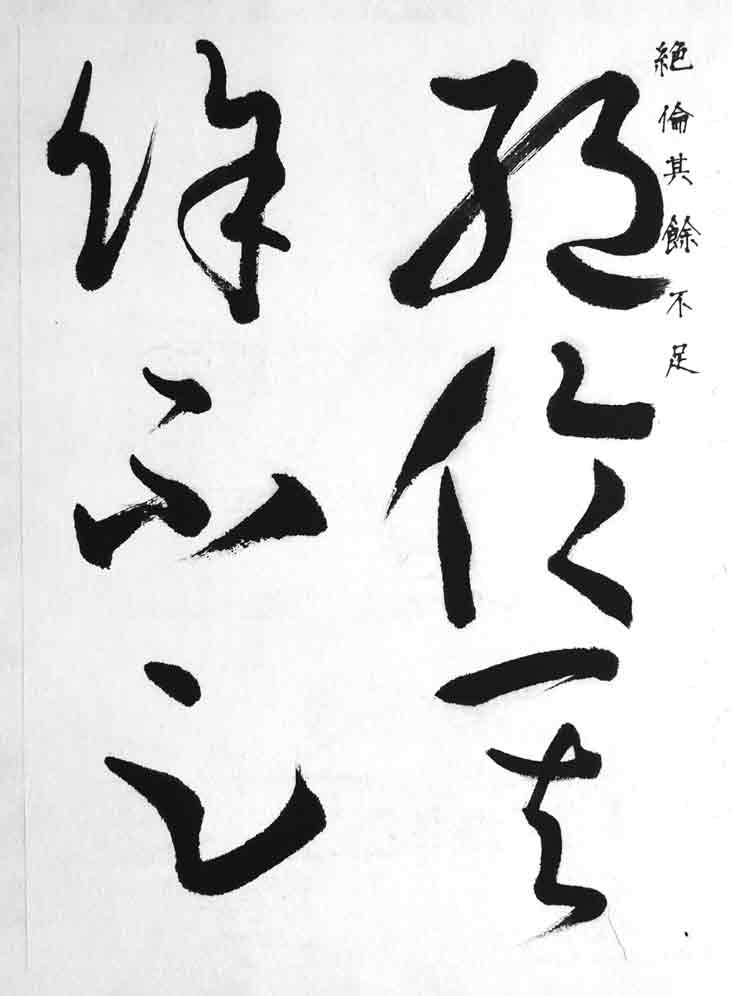 絕倫其餘不足
絕倫其
餘不足